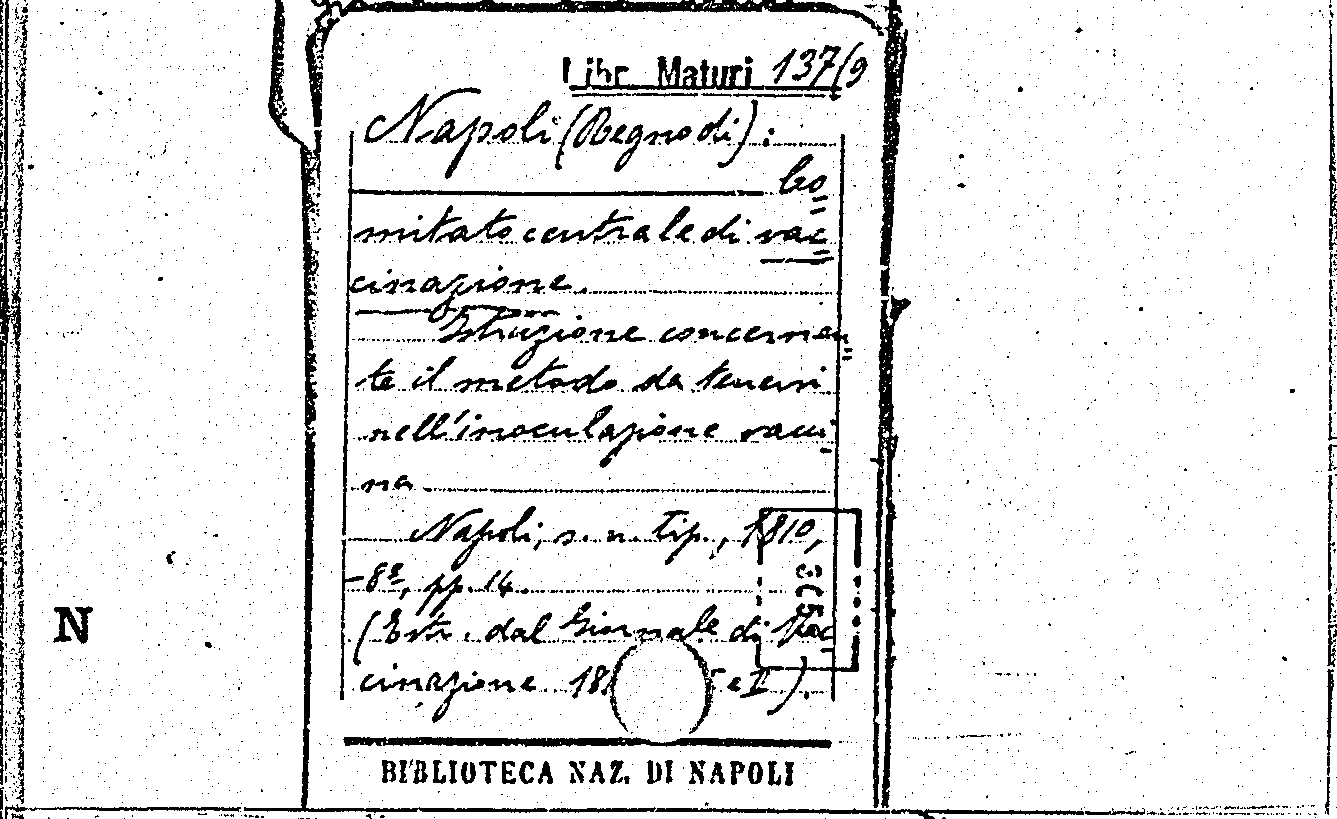 Libr. Maturi 137/9
Napoli (Regno di):
Co=
mitato centrale di vac=
cinazione.
Istruzione concernen=
te il metodo da tenersi
nell'inoculazione vacci-
na
Napoli, s. n. tip., 1810,
-8º, pp. 14.
(Estr. dal Giornale di Vac=
cinazione 18 e II).
BIBLIOTECA NAZ. DI NAPOLI
N